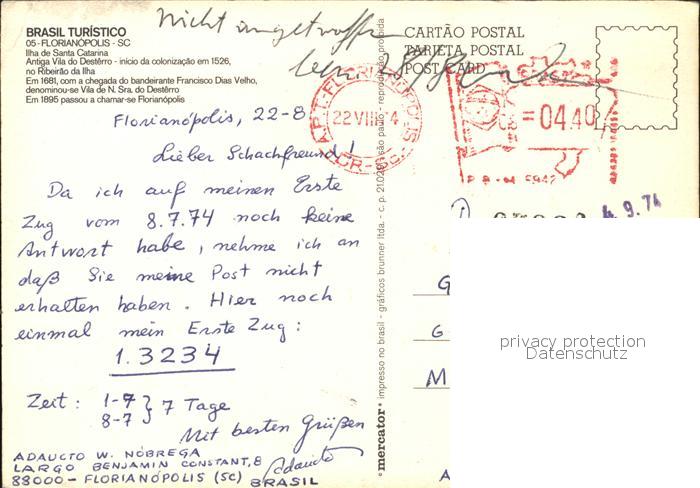 BRASIL TURÍSTICO
05-FLORIANÓPOLIS - SC
Ilha de Santa Catarina
Antiga Vila do Destêrro - início da colonização em 1526,
no Ribeirão da Ilha
Em 1681, com a chegada do bandeirante Francisco Dias Velho,
denominou-se Vila de N. Sra. do Destêrro
Em 1895 passou a chamar-se Florianópolis
Nicht angetroffen
CARTÃO POSTAL
TARJETA POSTAL
POST CARD
FLORIANÓPOLIS
22 VIII 4
=04.40
4.9.74
Florianópolis, 22-8
Lieber Schachfreund!
Da ich auf meinen Erste
Zug vom 8.7.74 noch keine
Antwort habe, nehme ich an
daß Sie meine Post nicht
erhalten haben. Hier noch
einmal mein Erste Zug:
1. 3234
Zeit: 1-7 } 7 Tage
8-7
Mit besten Grüßen
Adaucto
ADAUCTO W. NÓBREGA
LARGO BENJAMIN CONSTANT, 8
88000-FLORIANÓPOLIS (SC) BRASIL
mercator impresso no brasil - gráficos brunner ltda. - c. p. são paulo - reprodução proibida
G
G
M
A
privacy protection
Datenschutz